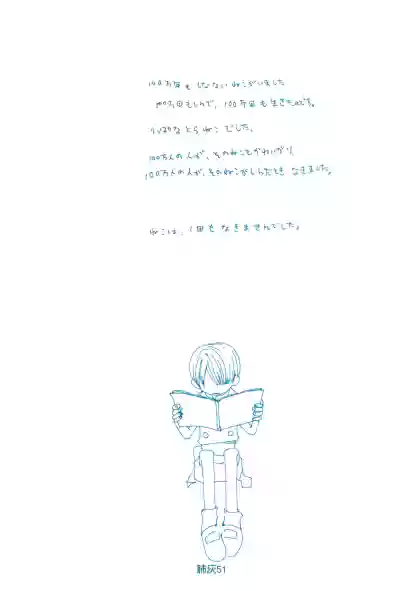 100万回もしなないねこがいました
100万回もしんで、100万回も生きたのです。
りっぱなとらねこでした。
100万人の人が、そのねこをかわいがり、
100万人の人が、そのねこがしんだとき なきました。
ねこは、1回もなきませんでした。
肺灰51